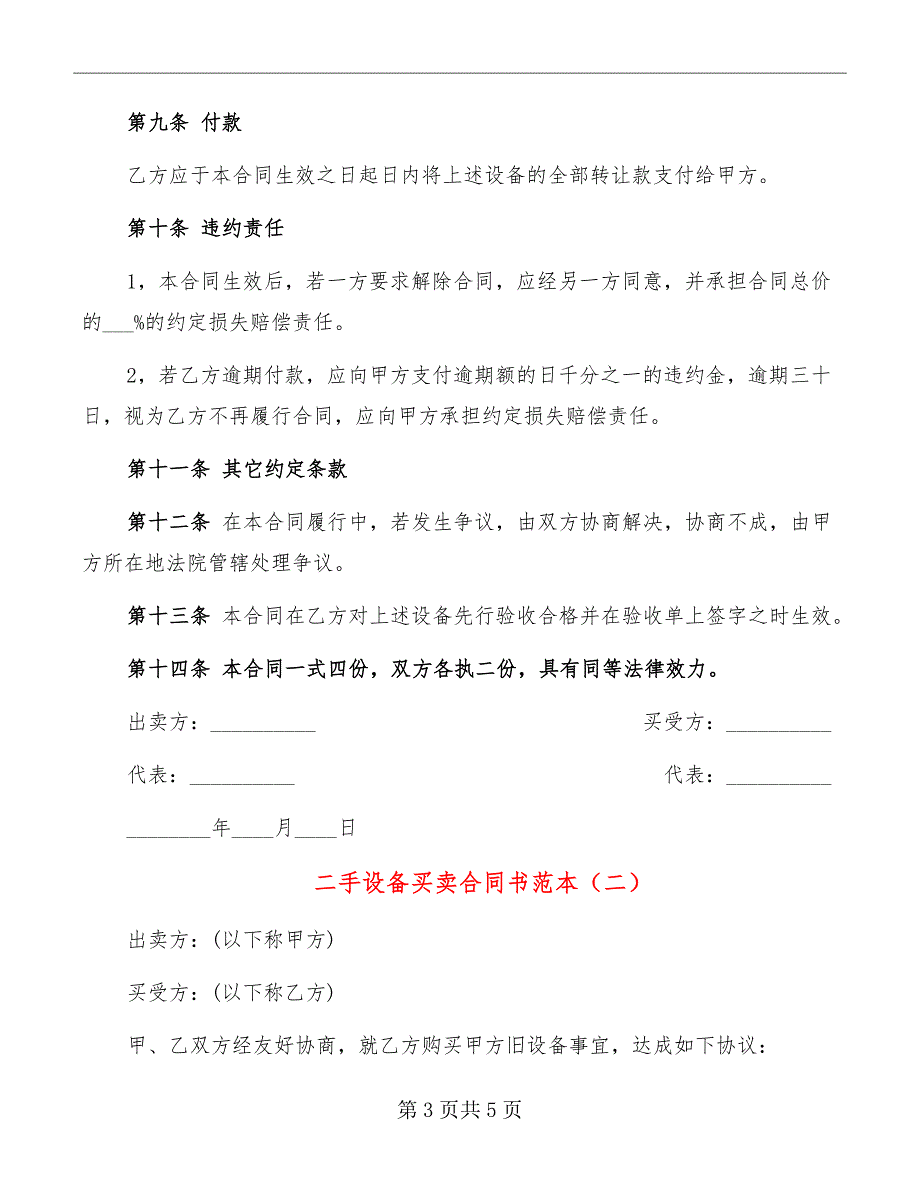 第九条 付款
乙方应于本合同生效之日起日内将上述设备的全部转让款支付给甲方。
第十条 违约责任
1，本合同生效后，若一方要求解除合同，应经另一方同意，并承担合同总价
的___%的约定损失赔偿责任。
2，若乙方逾期付款，应向甲方支付逾期额的日千分之一的违约金，逾期三十
日，视为乙方不再履行合同，应向甲方承担约定损失赔偿责任。
第十一条 其它约定条款
第十二条 在本合同履行中，若发生争议，由双方协商解决，协商不成，由甲
方所在地法院管辖处理争议。
第十三条 本合同在乙方对上述设备先行验收合格并在验收单上签字之时生效。
第十四条 本合同一式四份，双方各执二份，具有同等法律效力。
出卖方：__________ 买受方：__________
代表：__________ 代表：__________
________年____月____日
二手设备买卖合同书范本（二）
出卖方：(以下称甲方)
买受方：(以下称乙方)
甲、乙双方经友好协商，就乙方购买甲方旧设备事宜，达成如下协议：
第 3 页共 5 页